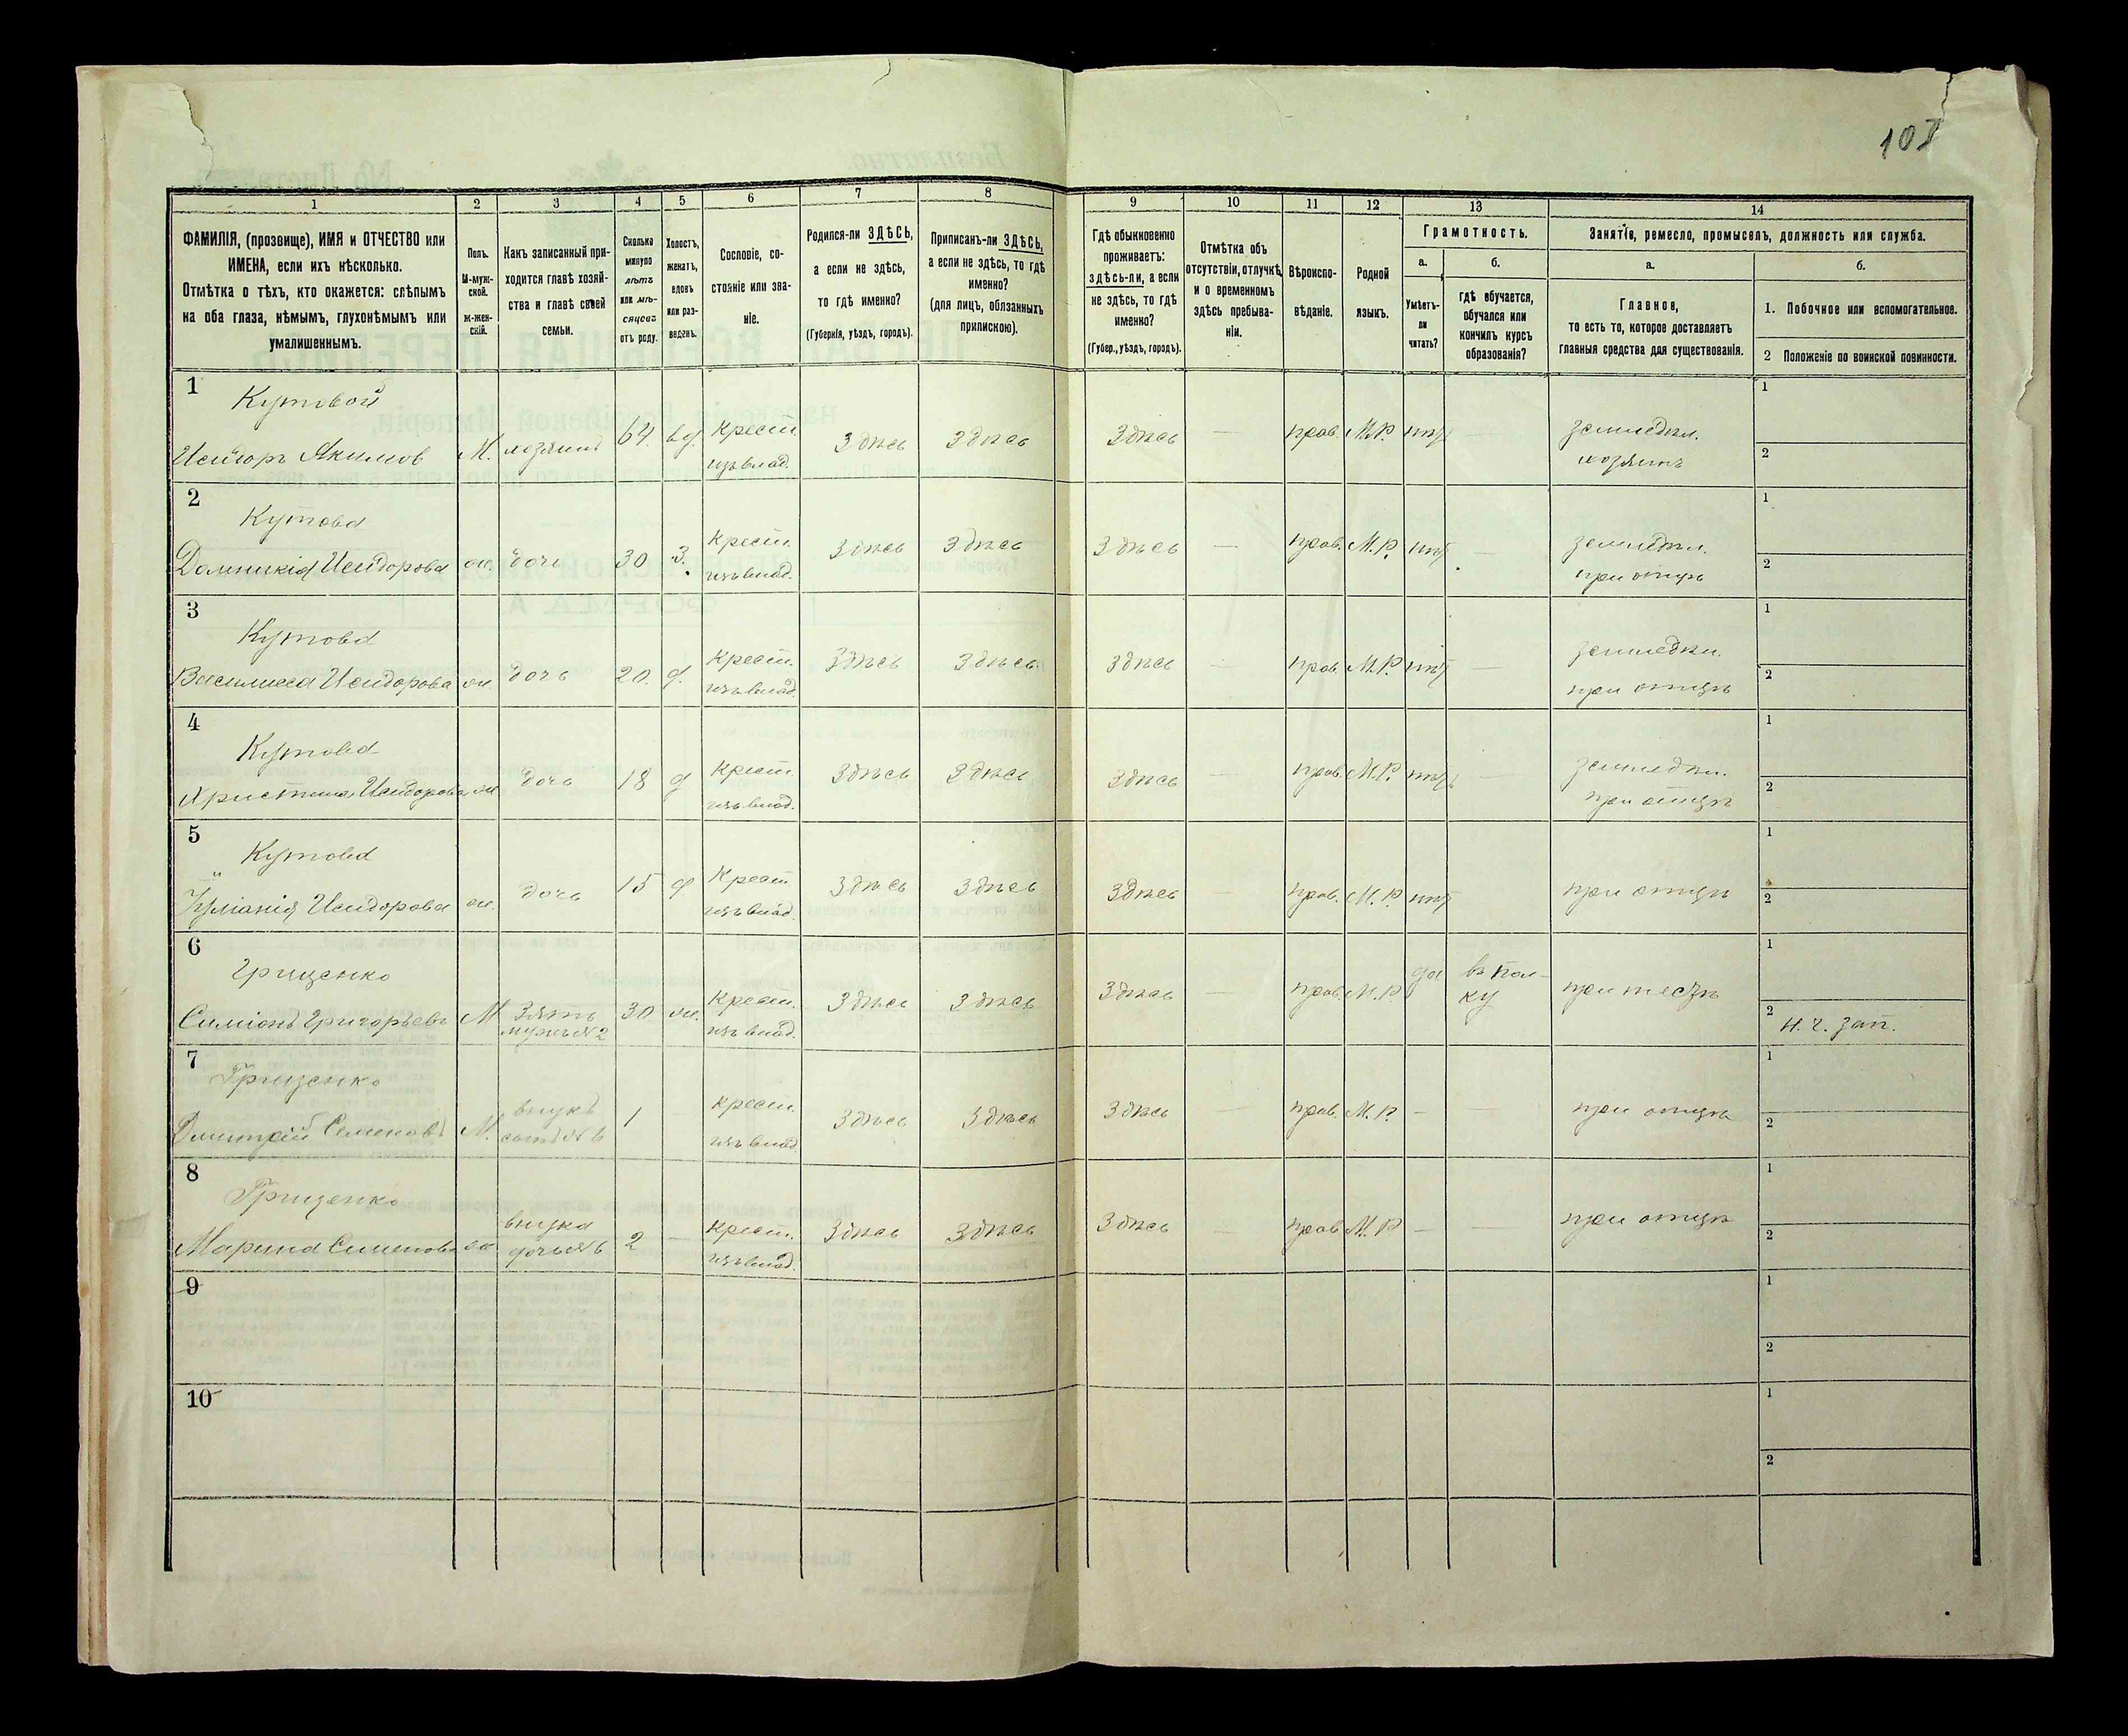 108
1
2
3
4
5
6
7
8
9
10
11
12
13
14
ФАМИЛІЯ, (прозвище), ИМЯ и ОТЧЕСТВО или
ИМЕНА, если ихъ нѣсколько.
Отмѣтка о тѣхъ, кто окажется: слѣпымъ
на оба глаза, нѣмымъ, глухонѣмымъ или
умалишеннымъ.
Полъ.
М-муж-
ской.
ж-жен-
скій.
Какъ записанный при-
ходится главѣ хозяй-
ства и главѣ своей
семьи.
Сколько
минуло
лѣтъ
или мѣ-
сяцевъ
отъ роду.
Холостъ,
женатъ,
вдовъ
или раз-
веденъ.
Сословіе, со-
стояніе или зва-
ніе.
Родился-ли ЗДѢСЬ,
а если не здѣсь,
то гдѣ именно?
(Губернія, уѣздъ, городъ).
Приписанъ-ли ЗДѢСЬ,
а если не здѣсь, то гдѣ
именно?
(для лицъ, обязанныхъ
припискою).
Гдѣ обыкновенно
проживаетъ:
здѣсь-ли, а если
не здѣсь, то гдѣ
именно?
(Губер., уѣздъ, городъ).
Отмѣтка объ
отсутствіи, отлучкѣ
и о временномъ
здѣсь пребыва-
ніи.
Вѣроиспо-
вѣданіе.
Родной
языкъ.
Грамотность.
а.
Умѣетъ-
ли
читать?
б.
гдѣ обучается,
обучался или
кончилъ курсъ
образованія?
Занятіе, ремесло, промыселъ, должность или служба.
а.
Главное,
то есть то, которое доставляетъ
главныя средства для существованія.
б.
1. Побочное или вспомогательное.
2 Положеніе по воинской повинности.
1
Кутовой
Исидоръ Акимов М. хозяинъ 64. вд. Крест. Здѣсь Здѣсь Здѣсь — прав. М.Р. нѣтъ — земледѣл. 1
изъ влад. хозяинъ 2
2
Кутова
Домникія Исидорова ж. дочь 30 з. крест. Здѣсь Здѣсь Здѣсь — прав. М.Р. нѣтъ — земледѣл. 1
изъ влад. при отцѣ 2
3
Кутова
Василиса Исидорова ж. дочь 20. д. Крест. Здѣсь Здѣсь Здѣсь — прав. М.Р. нѣтъ — земледѣл. 1
изъ влад. при отцѣ 2
4
Кутова
Христина Исидорова ж. дочь 18 д Крест. Здѣсь Здѣсь Здѣсь — прав. М.Р. нѣтъ — земледѣл. 1
изъ влад. при отцѣ 2
5
Кутова
Іуліанія Исидорова ж. дочь 15 д Крест. Здѣсь Здѣсь Здѣсь — прав. М.Р. нѣтъ при отцѣ 1
изъ влад. 2
6
Грищенко
Симіонъ Григорьевъ М Зять 30 ж. Крест. Здѣсь Здѣсь Здѣсь — прав. М.Р. да въ пол- при тестѣ 1
мужъ №2 изъ влад. ку 2 н. ч. зап.
7
Грищенко
Дмитрій Семеновъ М. внукъ 1 — крест. Здѣсь Здѣсь Здѣсь — прав. М.Р. — — при отцѣ 1
сынъ №6 изъ влад. 2
8
Грищенко
Марина Семенова ж. внучка 2 — Крест. Здѣсь Здѣсь Здѣсь — прав. М.Р — — при отцѣ 1
дочь №6 изъ влад. 2
9
1
2
10
1
2